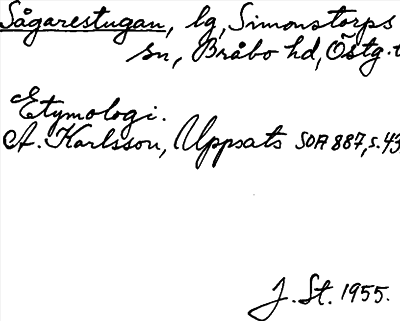 Sågarestugan, lg, Simonstorps
sn, Bråbo hd, Östg.
Etymologi.
A. Karlsson, Uppsats SOA 887, s. 43
J. St. 1955.